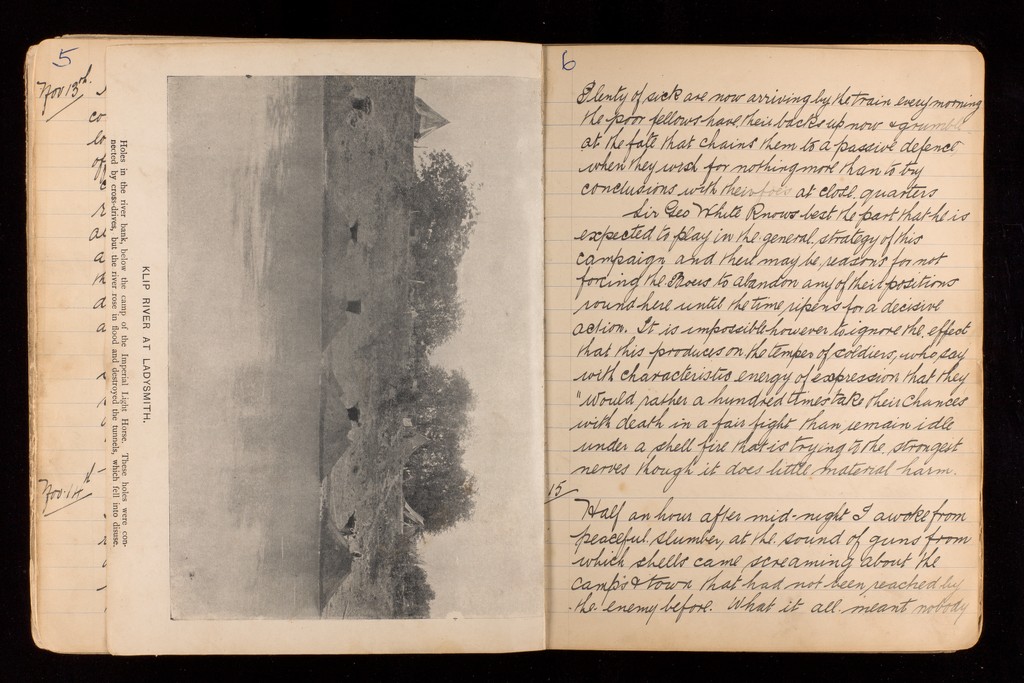 5
Nov 13th
co
at
a
th
d
a
Nov. 14th
Holes in the river bank, below the camp of the Imperial Light Horse. These holes were con-
nected by cross-drives, but the river rose in flood and destroyed the tunnels, which fell into disuse.
KLIP RIVER AT LADYSMITH.
6
Plenty of sick are now arriving by the train every morning
the poor fellows have their backs up now & grumble
at the fate that chains them to a passive defence,
when they wish for nothing more than to try
conclusions with their foes at close quarters
Sir Geo White Knows best the part that he is
expected to play in the general strategy of this
campaign and there may be reasons for not
forcing the Boers to abandon any of their positions
round here until the time ripens for a decisive
action. It is impossible however to ignore the effect
that this produces on the temper of soldiers, who say
with characteristic energy of expression that they
"would rather a hundred times take their chances
with death in a fair fight than remain idle
under a shell fire that is trying to the strongest
nerves though it does little material harm.
15
Half an hour after mid-night I awoke from
peaceful slumber, at the sound of guns from
which shells came screaming about the
camps & town that had not been reached by
the enemy before. What it all meant nobody